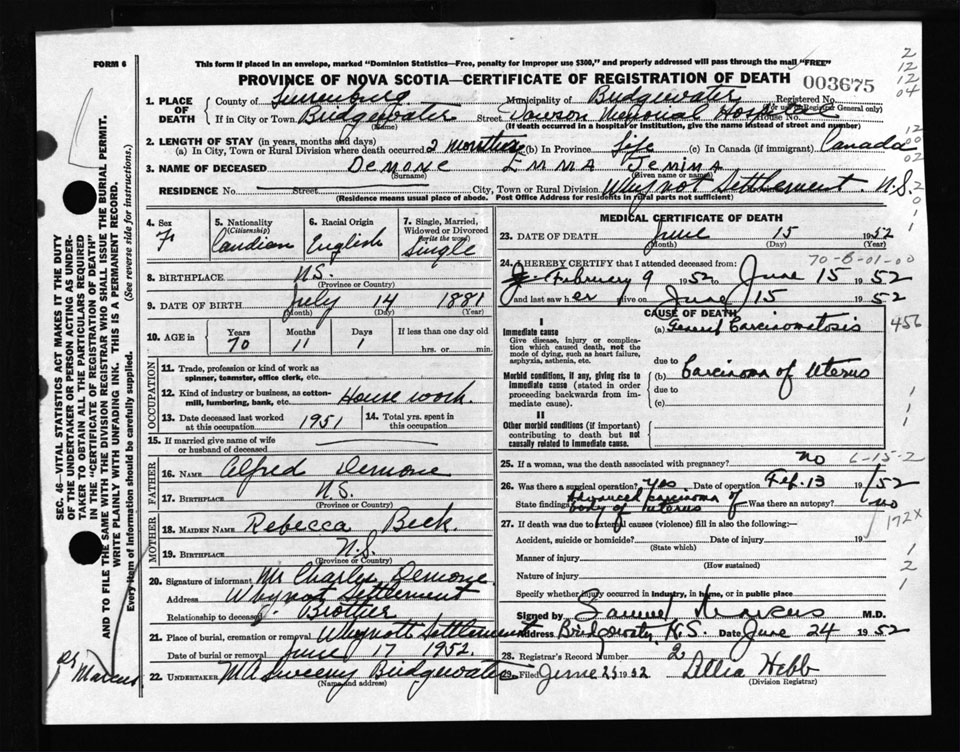 FORM 6
This form if placed in an envelope, marked "Dominion Statistics—Free, penalty for improper use $300," and properly addressed will pass through the mail "FREE"
PROVINCE OF NOVA SCOTIA—CERTIFICATE OF REGISTRATION OF DEATH
003675
2
12
12
04
1. PLACE OF DEATH
County of Lunenburg Municipality of Bridgewater Registered No.
(For use of Registrar General only)
If in City or Town Bridgewater Street Dawson Memorial Hospital House No.
(Name) (If death occurred in a hospital or institution, give the name instead of street and number)
2. LENGTH OF STAY (in years, months and days)
(a) In City, Town or Rural Division where death occurred 2 months (b) In Province Life (c) In Canada (if immigrant) Canada
12
00
02
3. NAME OF DECEASED Demone Emma Jemima
(Surname) (Given name or names)
RESIDENCE No. Street City, Town or Rural Division Whynot Settlement. N.S.
(Residence means usual place of abode. Post Office Address for residents in rural parts not sufficient)
2
0
1
4. Sex F.
5. Nationality (Citizenship) Candian
6. Racial Origin English
7. Single, Married, Widowed or Divorced (write the word) Single
8. BIRTHPLACE N.S.
(Province or Country)
9. DATE OF BIRTH July 14 1881
(Month) (Day) (Year)
10. AGE in Years 70 Months 11 Days 1 If less than one day old
hrs. or min.
OCCUPATION
11. Trade, profession or kind of work as spinner, teamster, office clerk, etc.
12. Kind of industry or business, as cotton-mill, lumbering, bank, etc. House work.
13. Date deceased last worked at this occupation 1951
14. Total yrs. spent in this occupation
15. If married give name of wife or husband of deceased
FATHER
16. NAME Alfred Demone
17. BIRTHPLACE N.S.
(Province or Country)
MOTHER
18. MAIDEN NAME Rebecca Beck.
19. BIRTHPLACE N.S.
(Province or Country)
20. Signature of informant Mr Charles Demone.
Address Whynot Settlement
Relationship to deceased Brother
21. Place of burial, cremation or removal Whynott Settlement
Date of burial or removal June 17 1952.
22. UNDERTAKER MA Sweeny Bridgewater
(Name and address)
MEDICAL CERTIFICATE OF DEATH
23. DATE OF DEATH June 15 1952
(Month) (Day) (Year)
70-B-01-00
24. I HEREBY CERTIFY that I attended deceased from:
February 9 1952 to June 15 1952
and last saw her alive on June 15 1952
CAUSE OF DEATH
I
Immediate cause
Give disease, injury or complication which caused death, not the mode of dying, such as heart failure, asphyxia, asthenia, etc.
(a) General Carcinomatosis
456
due to
Morbid conditions, if any, giving rise to immediate cause (stated in order proceeding backwards from immediate cause).
(b) Carcinoma of Uterus
due to
(c)
II
Other morbid conditions (if important) contributing to death but not causally related to immediate cause.
1
1
1
25. If a woman, was the death associated with pregnancy? no
6-15-2
26. Was there a surgical operation? yes Date of operation Feb. 13 1952
State findings Advanced carcinoma of body of uterus Was there an autopsy? no
172X
27. If death was due to external causes (violence) fill in also the following:—
Accident, suicide or homicide? Date of injury 19
(State which)
Manner of injury
(How sustained)
Nature of injury
Specify whether injury occurred in industry, in home, or in public place
1
2
1
Signed by Samuel Marcus M.D.
Address Bridgewater, N.S. Date June 24 1952
28. Registrar's Record Number 2
29. Filed June 25 1952 Hebb
(Division Registrar)
SEC. 46—VITAL STATISTICS ACT MAKES IT THE DUTY
OF THE UNDERTAKER OR PERSON ACTING AS UNDER-
TAKER TO OBTAIN ALL THE PARTICULARS REQUIRED
IN THE "CERTIFICATE OF REGISTRATION OF DEATH"
AND TO FILE THE SAME WITH THE DIVISION REGISTRAR WHO SHALL ISSUE THE BURIAL PERMIT.
WRITE PLAINLY WITH UNFADING INK. THIS IS A PERMANENT RECORD.
Every item of information should be carefully supplied. (See reverse side for instructions.)
Dr Marcus